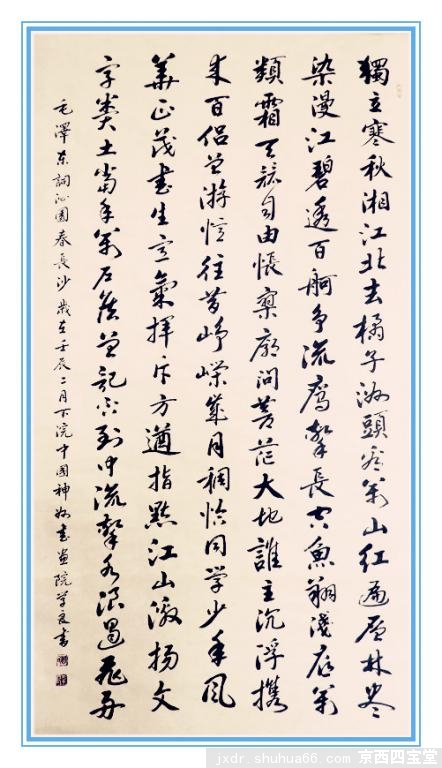 獨立寒秋湘江北去橘子洲頭看萬山紅遍层林尽
染漫江碧透百舸争流鹰擊長空魚翔淺底萬
類霜天競自由悵寥廓問蒼茫大地誰主沉浮携
来百侣曾游憶往昔崢嶸歲月稠恰同学少年風
華正茂書生意氣揮斥方遒指點江山激揚文
字粪土當年萬户侯曾記否到中流擊水浪遏飛舟
毛澤东詞沁園春長沙歲在壬辰二月下浣中國神州書画院学良書
jxdr.shuhua66.com 京西四宝堂